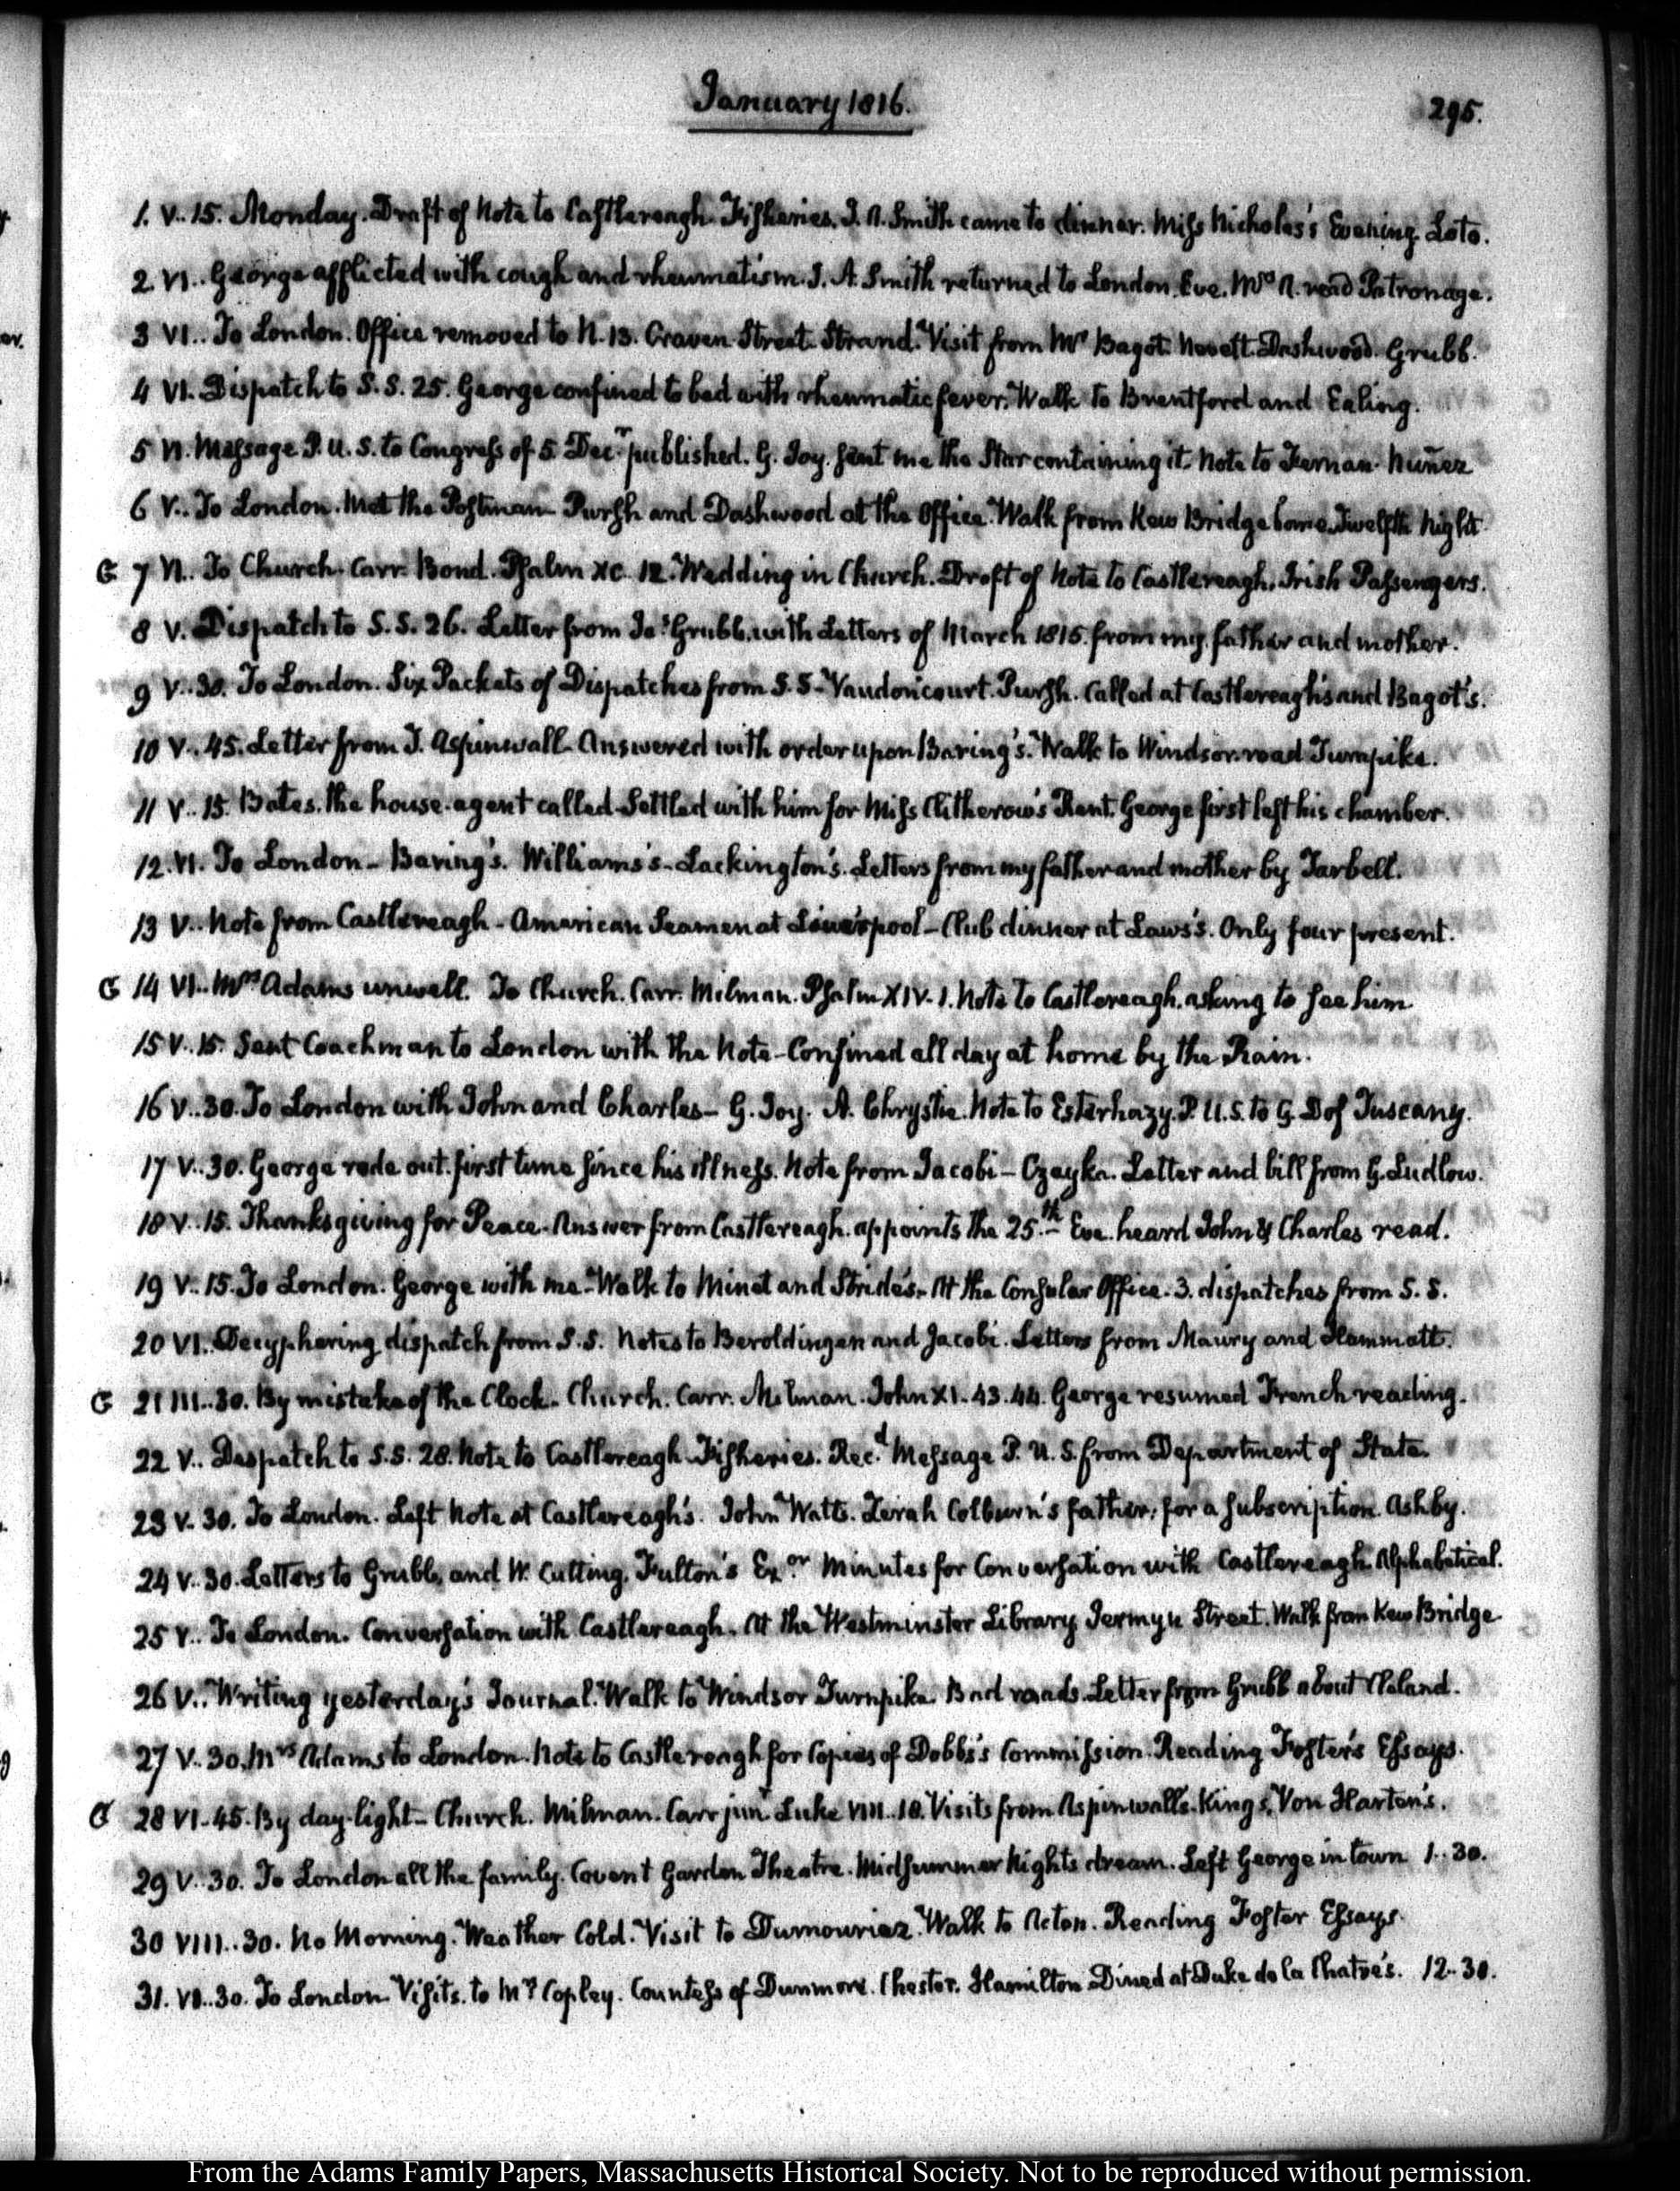 January 1816.
295.
1. V..15. Monday. Draft of Note to Castlereagh. Fisheries. J. A. Smith came to dinner. Miss Nicholas's Evening. Loto.
2 VI.. George afflicted with cough and rheumatism. J. A. Smith returned to London. Eve. Mrs A. read Patronage.
3 VI.. To London. Office removed to N. 13. Craven Street. Strand. Visit from Mr Bagot. Nowell. Dashwood. Grubb.
4 VI. Dispatch to S. S. 25. George confined to bed with rheumatic fever. Walk to Brentford and Ealing.
5 VI. Message P. U. S. to Congress of 5 Decr published. G. Joy. sent me the Star containing it. Note to Fernan. Nuñez
6 V.. To London. Met the Postman. Pursh and Dashwood at the Office. Walk from Kew Bridge home. Twelfth Night.
G 7 VI. To Church. Carr. Bond. Psalm XC. 12. Wedding in Church. Draft of Note to Castlereagh. Irish Passengers.
8 V. Dispatch to S. S. 26. Letter from Jas Grubb. with Letters of March 1815. from my father and mother.
9 V..30. To London. Six Packets of Dispatches from S. S. Vaudoncourt. Pursh. Called at Castlereagh's and Bagot's.
10 V..45. Letter from T. Aspinwall. Answered with order upon Baring's. Walk to Windsor road Turnpike.
11 V..15. Bates. the house-agent called. Settled with him for Miss Clitherow's Rent. George first left his chamber.
12. VI. To London - Baring's. Williams's - Lackington's. Letters from my father and mother by Tarbell.
13 V.. Note from Castlereagh - American Seamen at Liverpool - Club dinner at Laws's. Only four present.
G 14 VI.. Mrs Adams unwell. To Church. Carr. Milman. Psalm XIV. 1. Note to Castlereagh. asking to see him.
15 V..15. Sent Coachman to London with the Note - Confined all day at home by the Rain.
16 V..30. To London with John and Charles - G. Joy. A. Chrystie. Note to Esterhazy. P. U. S. to G. D of Tuscany.
17 V..30. George rode out. first time since his illness. Note from Jacobi - Czeyka. Letter and bill from G. Ludlow.
18 V..15. Thanksgiving for Peace. Answer from Castlereagh. appoints the 25.th Eve. heard John & Charles read.
19 V..15. To London. George with me. Walk to Minet and Stride's. At the Consular Office. 3. dispatches from S. S.
20 VI. Decyphering dispatch from S. S. Notes to Beroldingen and Jacobi. Letters from Maury and Hammatt.
G 21 III..30. By mistake of the Clock. Church. Carr. Milman. John XI. 43. 44. George resumed French reading.
22 V.. Despatch to S. S. 28. Note to Castlereagh. Fisheries. Recd Message P. U. S. from Department of State.
23 V. 30. To London. Left Note at Castlereagh's. John Watts. Zerah Colburn's father. for a subscription. Ashby.
24 V..30. Letters to Grubb, and W. Cutting. Fulton's Exor Minutes for Conversation with Castlereagh. Alphabetical.
25 V.. To London. Conversation with Castlereagh. At the Westminster Library Jermyn Street. Walk from Kew Bridge
26 V.. Writing yesterday's Journal. Walk to Windsor Turnpike. Bad roads. Letter from Grubb about Cleland.
27 V..30. Mrs Adams to London. Note to Castlereagh for Copies of Dobbs's Commission. Reading Foster's Essays.
G 28 VI..45. By day-light - Church. Milman. Carr junr Luke VIII. 18. Visits from Aspinwalls. Kings. Von Harten's.
29 V..30. To London all the family. Covent Garden Theatre. Midsummer Nights dream. Left George in town 1..30.
30 VIII..30. No Morning. Weather Cold. Visit to Dumouriez. Walk to Acton. Reading Foster Essays.
31. VII..30. To London. Visits. to Mrs Copley. Countess of Dunmore. Chester. Hamilton. Dined at Duke de la Chatre's. 12..30.
From the Adams Family Papers, Massachusetts Historical Society. Not to be reproduced without permission.